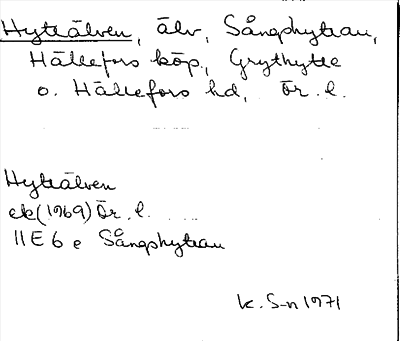 Hyttälven, älv, Sångshyttan,
Hällefors köp., Grythytte
o. Hällefors hd, Ör. l.
Hyttälven
ek (1969) Ör. l.
11E 6 e Sångshyttan
K. S-n 1971